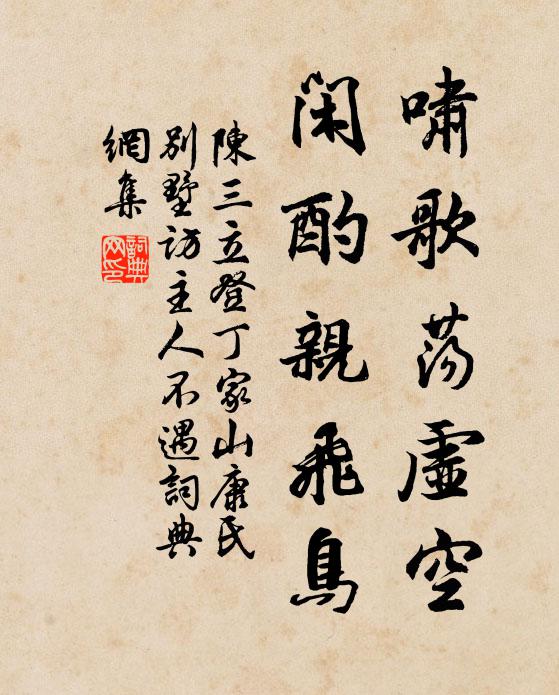 嘯歌蕩虛空
閑酌親飛鳥
陳三立登丁家山康氏
別墅訪主人不遇詞典
網集
詞典網印